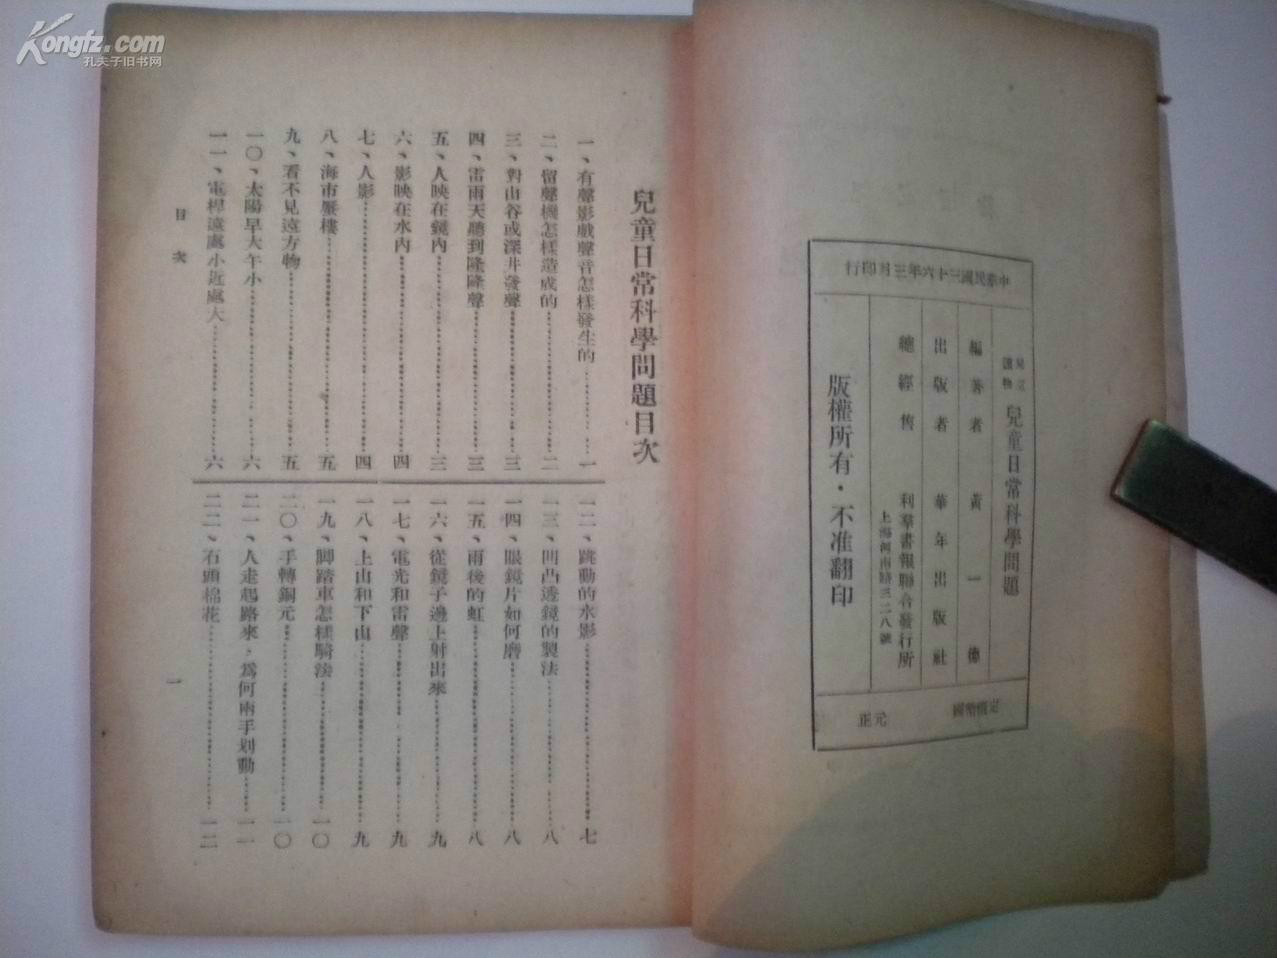 Kongfz.com
孔夫子旧书网
中華民國三十六年三月印行
兒童讀物
兒童日常科學問題
編著者 黃一德
出版者 華年出版社
總經售 利羣書報聯合發行所
上海河南路三二八號
版權所有・不准翻印
定價幣國
元正
兒童日常科學問題目次
一、有聲影戲聲音怎樣發生的……一
二、留聲機怎樣造成的……二
三、對山谷或深井發聲……三
四、雷雨天聽到隆隆聲……三
五、人映在鏡內……三
六、影映在水內……四
七、人影……四
八、海市蜃樓……五
九、看不見遠方物……五
一〇、太陽早大午小……六
一一、電桿遠處小近處大……六
一二、跳動的水影……七
一三、凹凸透鏡的製法……八
一四、眼鏡片如何磨……八
一五、雨後的虹……八
一六、從鏡子邊上射出來……九
一七、電光和雷聲……九
一八、上山和下山……九
一九、脚踏車怎樣騎法……一〇
二〇、手轉銅元……一〇
二一、人走起路來，爲何兩手划動……一一
二二、石頭棉花……一二
目次
一